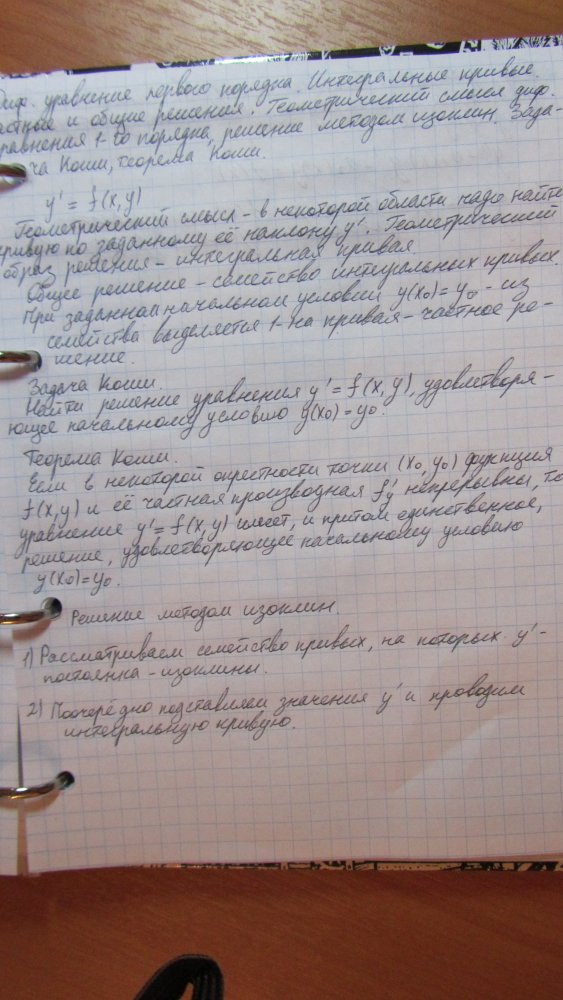 Диф. уравнение первого порядка. Интегральные кривые.
астные и общие решения. Геометрический смысл диф.
равнения 1-го порядка, решение методом изоклин. Зада-
ча Коши, теорема Коши.
y' = f(x,y)
Геометрический смысл - в некоторой области надо найти
кривую по заданному её наклону y'. Геометрический
образ решения - интегральная кривая.
Общее решение - семейство интегральных кривых.
При заданном начальном условии y(x₀)=y₀ - из
семейства выделяется 1-на кривая - частное ре-
шение.
Задача Коши.
Найти решение уравнения y' = f(x,y), удовлетворя-
ющее начальному условию y(x₀)=y₀.
Теорема Коши.
Если в некоторой окрестности точки (x₀,y₀) функция
f(x,y) и её частная производная f'y непрерывны, то
уравнение y'=f(x,y) имеет, и притом единственное,
решение, удовлетворяющее начальному условию
y(x₀)=y₀.
Решение методом изоклин.
1) Рассматриваем семейство кривых, на которых y' -
постоянна - изоклины.
2) Поочерёдно подставляем значения y' и проводим
интегральную кривую.